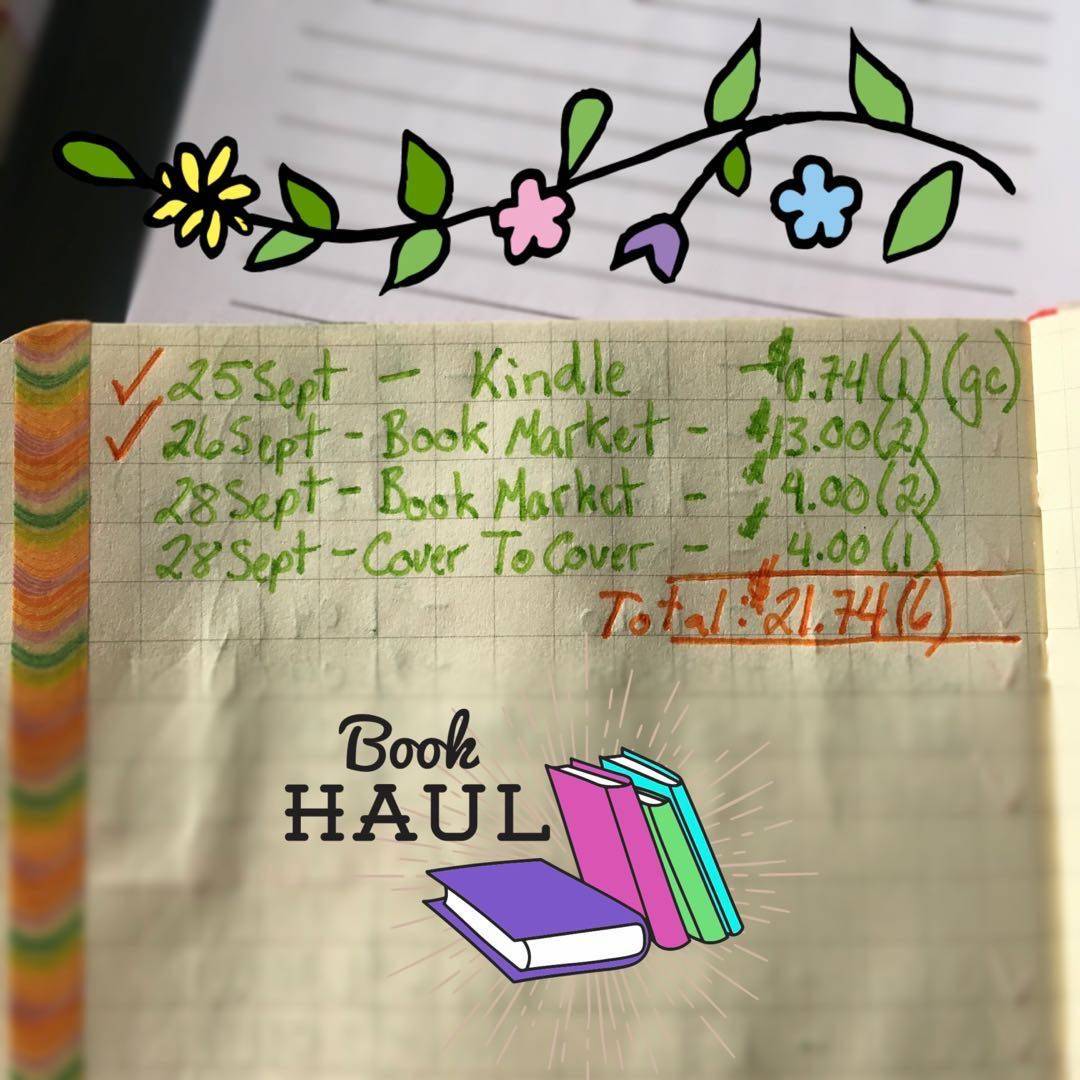 ✓ 25 Sept - Kindle - $0.74 (1) (gc)
✓ 26 Sept - Book Market - $13.00 (2)
28 Sept - Book Market - $4.00 (2)
28 Sept - Cover To Cover - $4.00 (1)
Total: $21.74 (6)
Book
HAUL